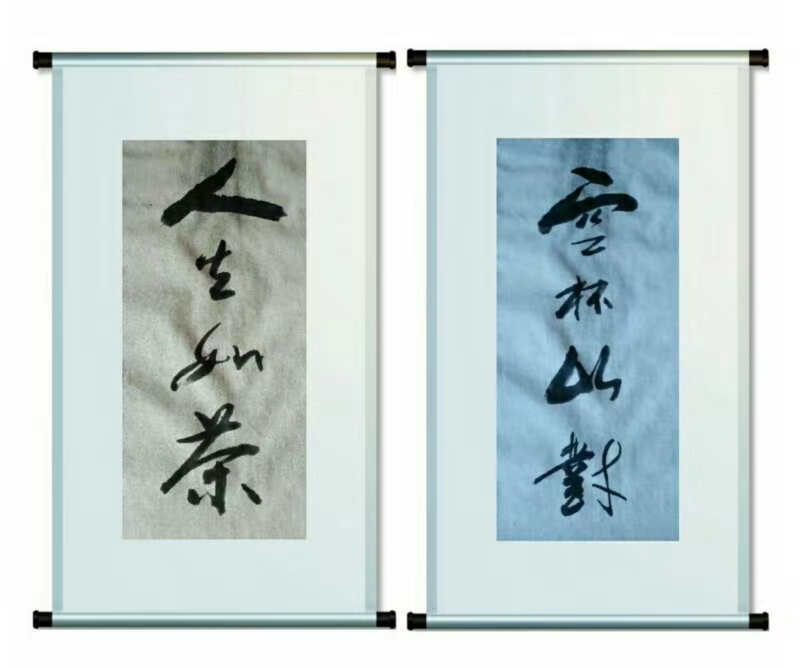 人生如茶
空杯以對